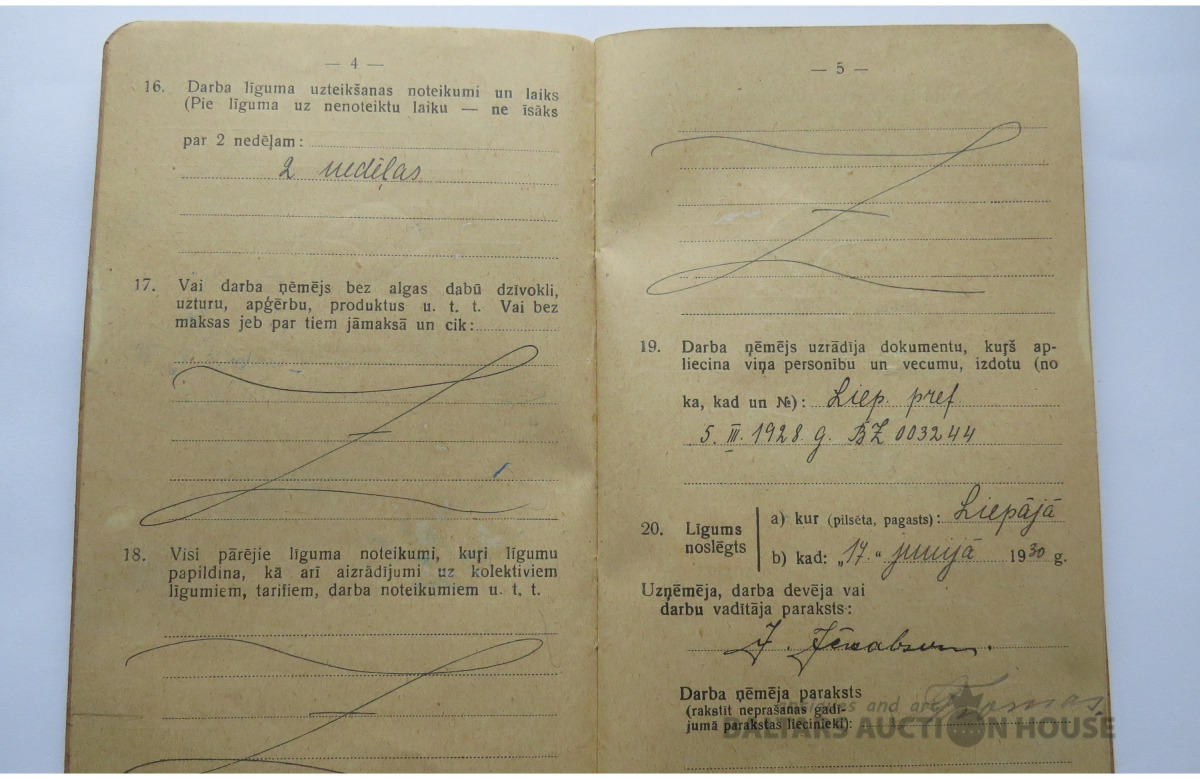 — 4 —
16. Darba līguma uzteikšanas noteikumi un laiks
(Pie līguma uz nenoteiktu laiku — ne īsāks
par 2 nedēļam:
2 nedēļas
17. Vai darba ņēmējs bez algas dabū dzīvokli,
uzturu, apģērbu, produktus u. t. t. Vai bez
maksas jeb par tiem jāmaksā un cik:
18. Visi pārējie līguma noteikumi, kuŗi līgumu
papildina, kā arī aizrādījumi uz kolektiviem
līgumiem, tarifiem, darba noteikumiem u. t. t.
— 5 —
19. Darba ņēmējs uzrādīja dokumentu, kuŗš ap-
liecina viņa personību un vecumu, izdotu (no
ka, kad un №): Liep. pref
5. III. 1928. g. BZ 003244
20. Līgums noslēgts
a) kur (pilsēta, pagasts): Liepājā
b) kad: „17.“ junijā 1930 g.
Uzņēmēja, darba devēja vai
darbu vadītāja paraksts:
Darba ņēmēja paraksts
(rakstīt neprašanas gadī-
jumā parakstas liecinieki):
and
BALTARS AUCTION HOUSE